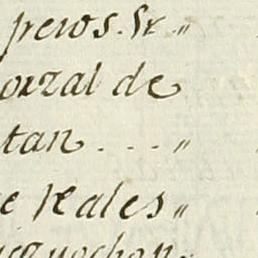 peros. Sr. "
orzal de
tan . . . . "
e Reales "